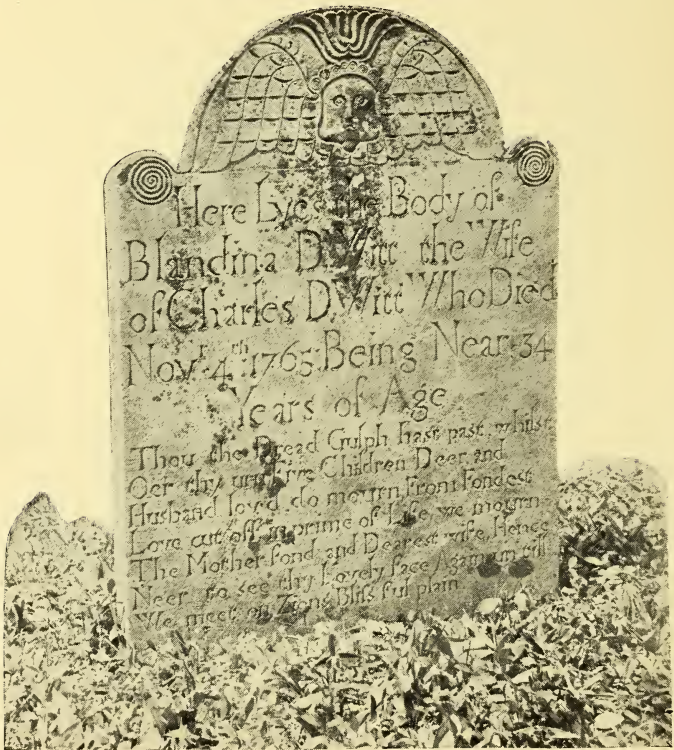 Here Lyes the Body of
Blandina D.Witt the Wife
of Charles D.Witt Who Died
Novr. 4th. 1765. Being Near 34
Years of Age
Thou the Dread Gulph hast past, whilst
Oer thy urn Five Children Deer and
Husband lov'd, do mourn From Fondest
Love cut off in prime of Life we mourn
The Mother fond, and Dearest wife, Hence
Neer to see thy Lovely face Again till
We meet on Zions Bliss ful plain